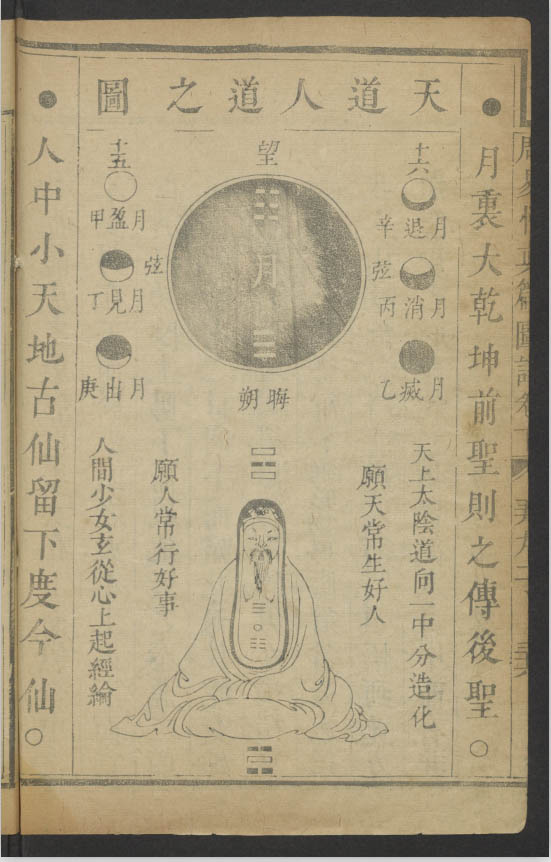 天道人道之圖
月裏大乾坤前聖則之傳後聖
十六
月退辛
弦
月消丙
月滅乙
望
月
晦朔
十五
月盈甲
弦
月見丁
月出庚
天上太陰道向一中分造化
願天常生好人
願人常行好事
人間少女玄從心上起經綸
人中小天地古仙留下度今仙